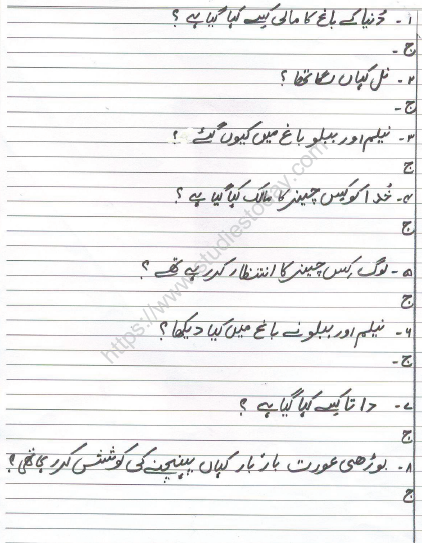 ۱- دُنیا کے باغ کا مالی کِسے کہا گیا ہے ؟
ج -
۲- نل کہاں لگا تھا ؟
ج -
۳- نیلم اور ببلو باغ میں کیوں گئے ؟
ج
۴- خُدا کو کِس چیز کا مالک کہا گیا ہے ؟
ج
۵- لوگ کِس چیز کا انتظار کر رہے تھے ؟
ج
۶- نیلم اور ببلو نے باغ میں کیا دیکھا ؟
ج -
۷- داتا کِسے کہا گیا ہے ؟
ج
۸- بوڑھی عورت بار بار کہاں پہنچنے کی کوشش کر رہی تھی ؟
ج
https://www.studiestoday.com